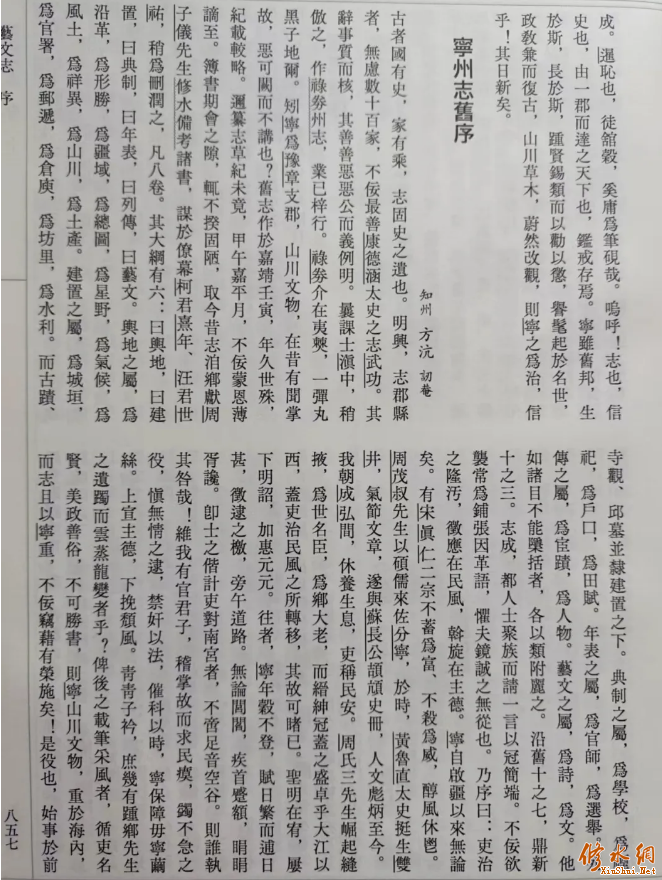 成。邇恥也，徒餔穀，奚庸爲筆硯哉。嗚呼！志也，信
史也，由一郡而達之天下也，鑑戒存焉。寧雖舊邦，生
於斯，長於斯，踵賢錫類而以勸以懲，譽髦起於名世，
政教兼而復古，山川草木，蔚然改觀，則寧之爲治，信
乎！其日新矣。
寧州志舊序
知州 方沆 訒菴
古者國有史，家有乘，志固史之遺也。明興，志郡縣
者，無慮數十百家，不佞最善康德涵太史之志武功。其
辭事質而核，其善善惡惡公而義例明。曩課士滇中，稍
倣之，作祿券州志，業已梓行。祿券介在夷僰，一彈丸
黑子地爾。矧寧爲豫章支郡，山川文物，在昔有聞掌
故，惡可闕而不講也？舊志作於嘉靖壬寅，年久世殊，
紀載較略。邇纂志草紀未竟，甲午嘉平月，不佞蒙恩薄
謫至。簿書期會之隙，輒不揆固陋，取今昔志洎鄉獻周
子儀先生修水備考諸書，謀於僚幕柯君熹年、汪君世
祐，稍爲刪潤之，凡八卷。其大綱有六：曰輿地，曰建
置，曰典制，曰年表，曰列傳，曰藝文。輿地之屬，爲
沿革，爲形勝，爲疆域，爲總圖，爲星野，爲氣候，爲
風土，爲祥異，爲山川，爲土產。建置之屬，爲城垣，
爲官署，爲郵遞，爲倉庾，爲坊里，爲水利。而古蹟、
寺觀、邱墓並隸建置之下。典制之屬，爲學校，爲
祀，爲戶口，爲田賦。年表之屬，爲官師，爲選舉。
傳之屬，爲宦蹟，爲人物。藝文之屬，爲詩，爲文。他
如諸目不能櫽括者，各以類附麗之。沿舊十之七，鼎新
十之三。志成，都人士聚族而請一言以冠簡端。不佞欲
襲常爲鋪張因革語，懼夫鏡誠之無從也。乃序曰：吏治
之隆汚，徵應在民風，斡旋在主德。寧自啟疆以來無論
矣。有宋眞、仁二宗不蓄爲富、不殺爲威，醇風休鬯。
周茂叔先生以碩儒來佐分寧，於時，黃魯直太史挺生雙
井，氣節文章，遂與蘇長公頡頏史冊，人文彪炳至今。
我朝成弘間，休養生息，吏稱民安。周氏三先生崛起縫
掖，爲世名臣，爲鄉大老，而縉紳冠蓋之盛卓乎大江以
西，蓋吏治民風之所轉移，其故可睹已。聖明在宥，屢
下明詔，加惠元元。往者，寧年穀不登，賦日繁而逋日
甚，徵逮之檄，旁午道路。無論閭閻，疾首蹙額，睊睊
胥讒。卽士之偕計吏對南宮者，不啻足音空谷。則誰執
其咎哉！維我有官君子，稽掌故而求民瘼，蠲不急之
役，愼無情之逮，禁奸以法，催科以時，寧保障毋寧繭
絲。上宣主德，下挽頹風。靑靑子衿，庶幾有踵鄉先生
之遺躅而雲蒸龍變者乎？俾後之載筆采風者，循吏名
賢，美政善俗，不可勝書，則寧山川文物，重於海內，
而志且以寧重，不佞竊藉有榮施矣！是役也，始事於前
藝文志 序
八五七
修水網
XiuShui.Net